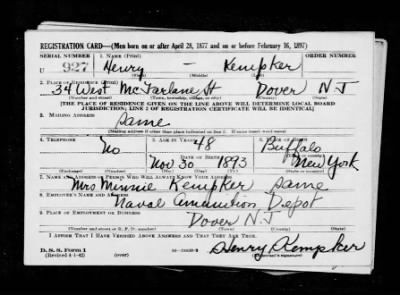 REGISTRATION CARD—(Men born on or after April 28, 1877 and on or before February 16, 1897)
SERIAL NUMBER 1. NAME (Print) ORDER NUMBER
U 927 Henry – Kempker
2. PLACE OF RESIDENCE (Print)
34 West McFarlane St Dover N J
(Number and street) (Town, township, village, or city) (County) (State)
[THE PLACE OF RESIDENCE GIVEN ON THE LINE ABOVE WILL DETERMINE LOCAL BOARD
JURISDICTION; LINE 2 OF REGISTRATION CERTIFICATE WILL BE IDENTICAL]
3. MAILING ADDRESS
Same
[Mailing address if other than place indicated on line 2. If same insert word same]
4. TELEPHONE 5. AGE IN YEARS 6. PLACE OF BIRTH
no 48 Buffalo
DATE OF BIRTH
Nov 30 1893 New York
7. NAME AND ADDRESS OF PERSON WHO WILL ALWAYS KNOW YOUR ADDRESS
Mrs Minnie Kempker same
8. EMPLOYER'S NAME AND ADDRESS
Naval Amunition Depot
9. PLACE OF EMPLOYMENT OR BUSINESS
Dover N.J
(Number and street or R. F. D. number) (Town) (County) (State)
I AFFIRM THAT I HAVE VERIFIED ABOVE ANSWERS AND THAT THEY ARE TRUE.
D. S. S. Form 1
(Revised 4-1-42) (over) Henry Kempker
(Registrant's signature)